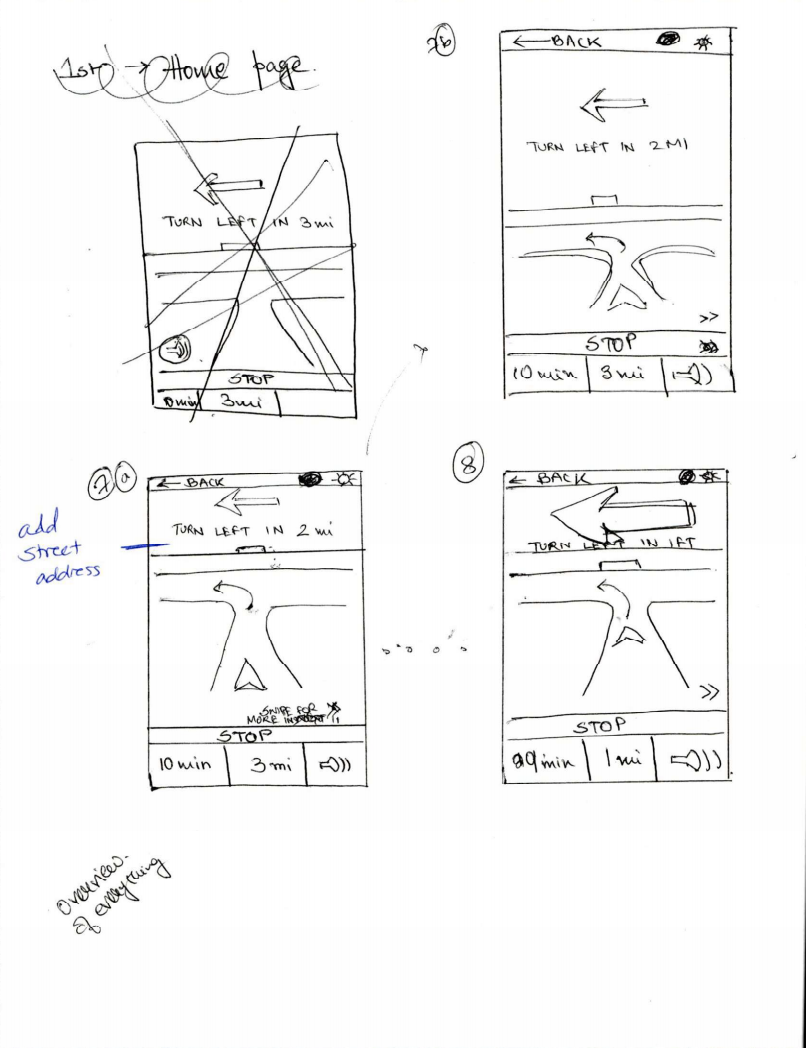 1st → Home page.
TURN LEFT IN 3 mi
STOP
10 min 3 mi
7b
← BACK
TURN LEFT IN 2 MI
>>
STOP
10 min 3 mi
7a
← BACK
TURN LEFT IN 2 mi
add
street
address
SWIPE FOR
MORE
STOP
10 min 3 mi
8
← BACK
TURN LEFT IN 1FT
>>
STOP
9 min 1 mi
overview
of everything